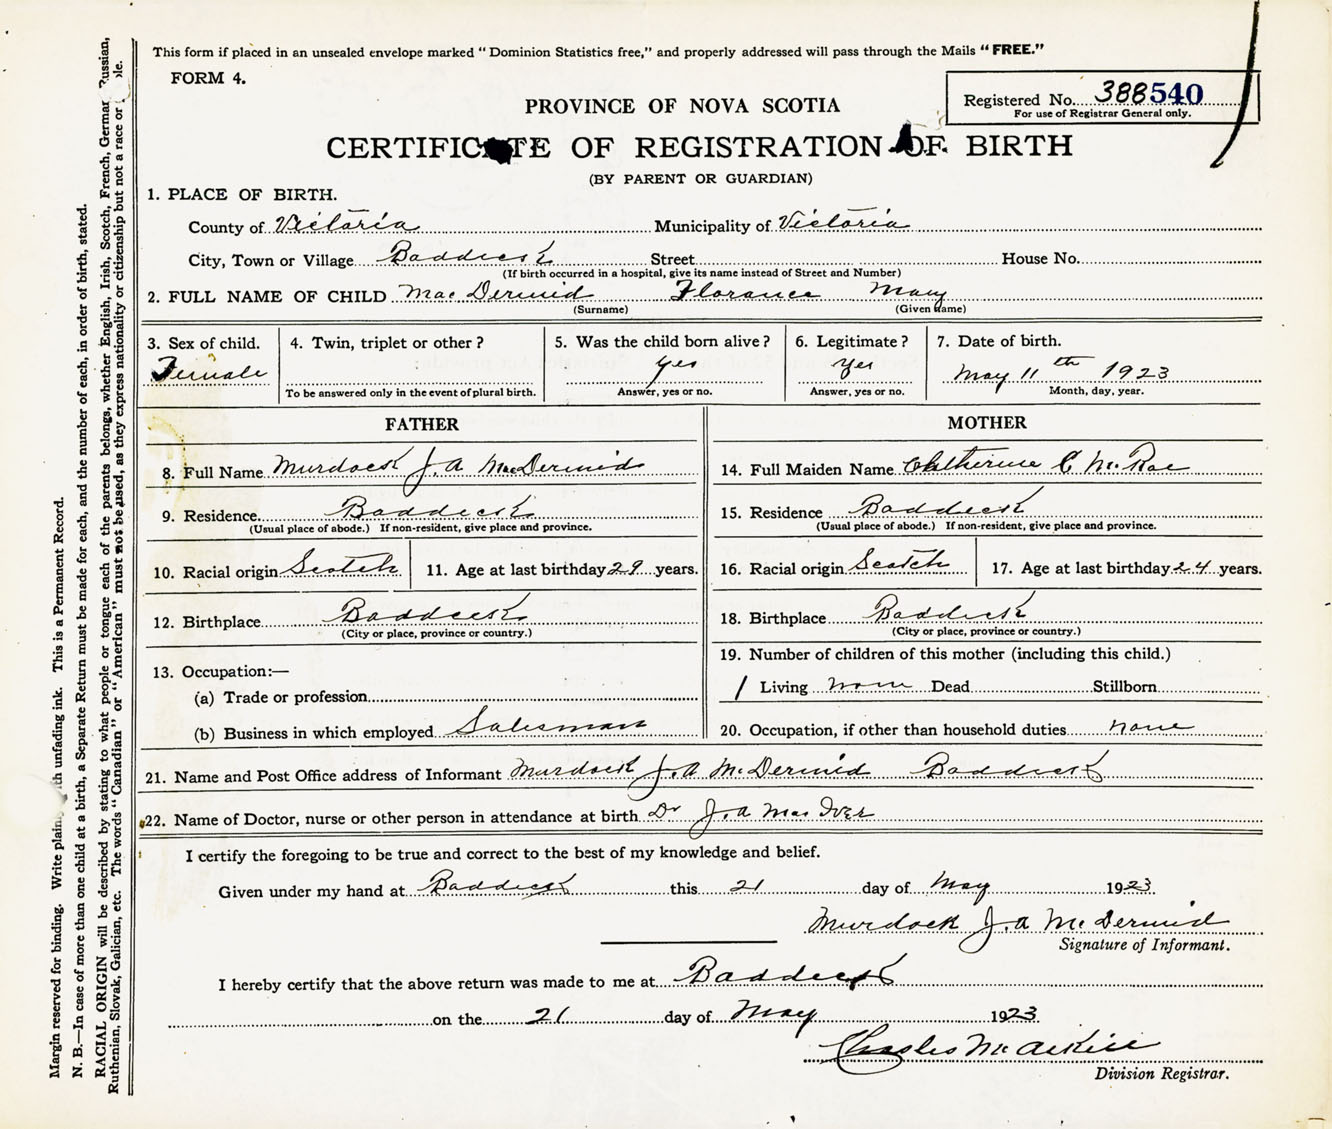 This form if placed in an unsealed envelope marked "Dominion Statistics free," and properly addressed will pass through the Mails "FREE."
FORM 4.
Registered No. 388540
For use of Registrar General only.
PROVINCE OF NOVA SCOTIA
CERTIFICATE OF REGISTRATION OF BIRTH
(BY PARENT OR GUARDIAN)
1. PLACE OF BIRTH.
County of Victoria Municipality of Victoria
City, Town or Village Baddeck Street House No.
(If birth occurred in a hospital, give its name instead of Street and Number)
2. FULL NAME OF CHILD Mac Dermid Florance Mary
(Surname) (Given name)
3. Sex of child. 4. Twin, triplet or other? 5. Was the child born alive? 6. Legitimate? 7. Date of birth.
Female yes Yes May 11th 1923
To be answered only in the event of plural birth. Answer, yes or no. Answer, yes or no. Month, day, year.
FATHER MOTHER
8. Full Name Murdock J. A MacDermid 14. Full Maiden Name Catherine C McRae
9. Residence Baddeck 15. Residence Baddeck
(Usual place of abode.) If non-resident, give place and province. (Usual place of abode.) If non-resident, give place and province.
10. Racial origin Scotch 11. Age at last birthday 29 years. 16. Racial origin Scotch 17. Age at last birthday 24 years.
12. Birthplace Baddeck 18. Birthplace Baddeck
(City or place, province or country.) (City or place, province or country.)
19. Number of children of this mother (including this child.)
13. Occupation:—
(a) Trade or profession 1 Living none Dead Stillborn
(b) Business in which employed Salesman 20. Occupation, if other than household duties none
21. Name and Post Office address of Informant Murdock J. A McDermid Baddeck
22. Name of Doctor, nurse or other person in attendance at birth Dr J. A Mac Iver
I certify the foregoing to be true and correct to the best of my knowledge and belief.
Given under my hand at Baddeck this 21 day of May 1923
Murdock J. A McDermid
Signature of Informant.
I hereby certify that the above return was made to me at Baddeck
on the 21 day of May 1923
Charles
Division Registrar.
Margin reserved for binding. Write plain with unfading ink. This is a Permanent Record.
N. B.—In case of more than one child at a birth, a Separate Return must be made for each, and the number of each, in order of birth, stated.
RACIAL ORIGIN will be described by stating to what people or tongue each of the parents belongs, whether English, Irish, Scotch, French, German, Russian,
Ruthenian, Slovak, Galician, etc. The words "Canadian" or "American" must not be used, as they express nationality or citizenship but not a race or